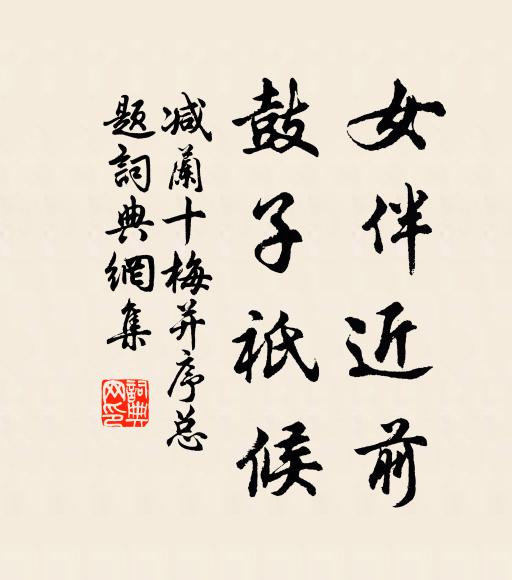 女伴近前
鼓子祗候
减蘭十梅并序总
題詞典網集
詞典
网印